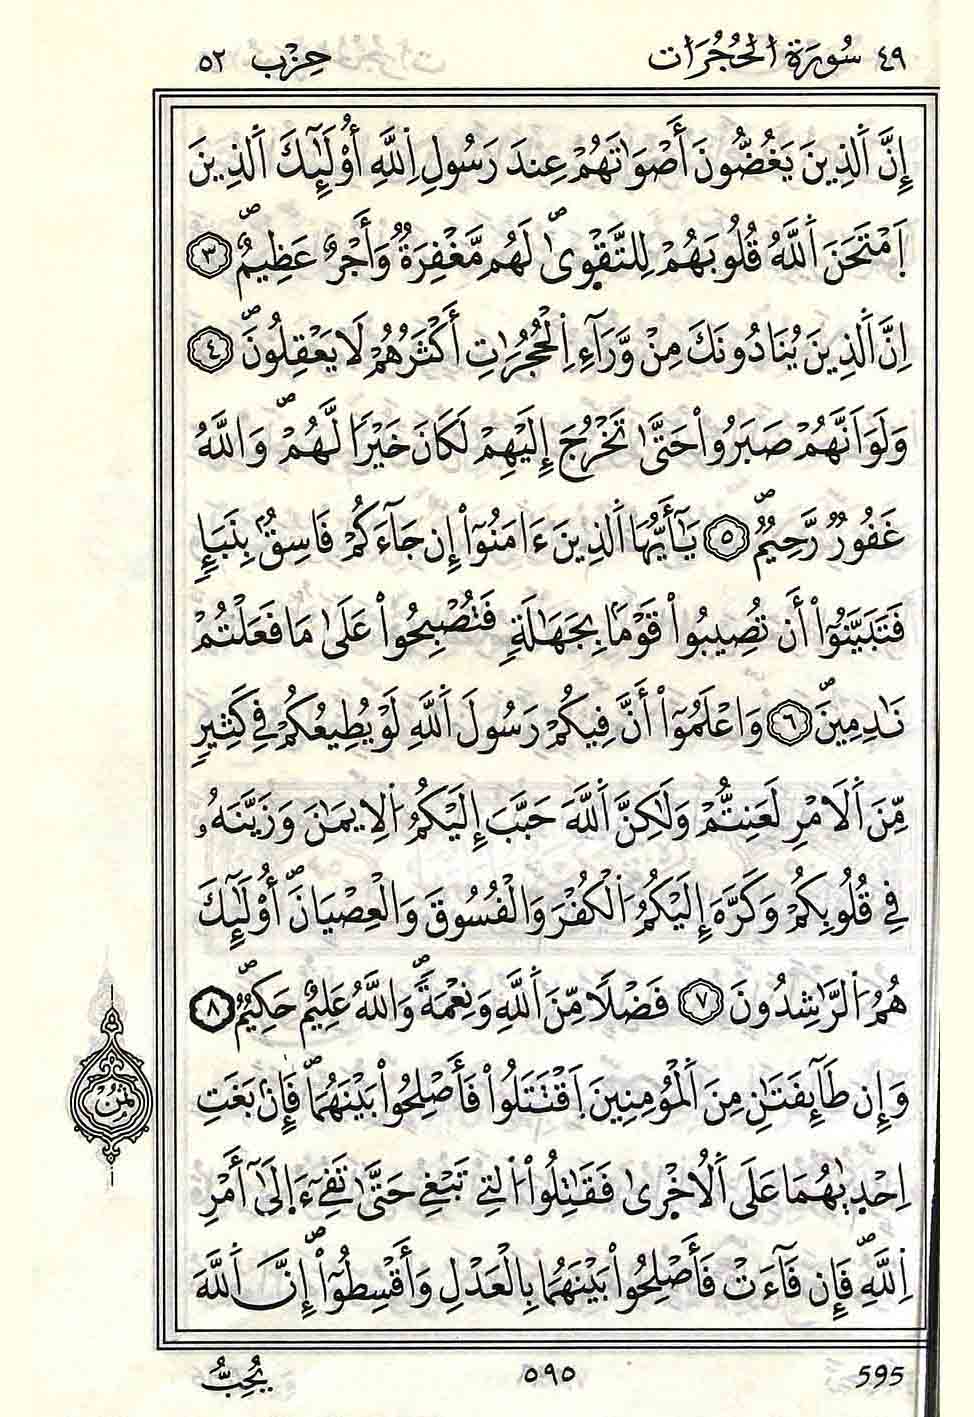 ٤٩ سُورَةُ الْحُجُرَاتِ حِزْب ٥٢
إِنَّ اَ۬لذِينَ يَغُضُّونَ أَصْوَٰتَهُمْ عِندَ رَسُولِ اِ۬للَّهِ أُوْلَٰٓئِكَ اَ۬لذِينَ
اَ۪مْتَحَنَ اَ۬للَّهُ قُلُوبَهُمْ لِلتَّقْو۪يٰۖ لَهُم مَّغْفِرَةٌ وَأَجْرٌ عَظِيمٌۖ ٣
اِنَّ اَ۬لذِينَ يُنَادُونَكَ مِنْ وَّرَآءِ اِ۬لْحُجُرَٰتِ أَكْثَرُهُمْ لَا يَعْقِلُونَۖ ٤
وَلَوَ اَنَّهُمْ صَبَرُواْ حَتَّىٰ تَخْرُجَ إِلَيْهِمْ لَكَانَ خَيْراٗ لَّهُمْۖ وَاللَّهُ
غَفُورٌ رَّحِيمٌۖ ٥ يَٰٓأَيُّهَا اَ۬لذِينَ ءَامَنُوٓاْ إِن جَآءَكُمْ فَاسِقُۢ بِنَبَإٖ
فَتَبَيَّنُوٓاْ أَن تُصِيبُواْ قَوْماَۢ بِجَهَٰلَةٖ فَتُصْبِحُواْ عَلَىٰ مَا فَعَلْتُمْ
نَٰدِمِينَۖ ٦ وَاعْلَمُوٓاْ أَنَّ فِيكُمْ رَسُولَ اَ۬للَّهِ لَوْ يُطِيعُكُمْ فِے كَثِيرٖ
مِّنَ اَ۬لَامْرِ لَعَنِتُّمْ وَلَٰكِنَّ اَ۬للَّهَ حَبَّبَ إِلَيْكُمُ اُ۬لِايمَٰنَ وَزَيَّنَهُۥ
فِے قُلُوبِكُمْ وَكَرَّهَ إِلَيْكُمُ اُ۬لْكُفْرَ وَالْفُسُوقَ وَالْعِصْيَانَۖ أُوْلَٰٓئِكَ
هُمُ اُ۬لرَّٰشِدُونَ ٧ فَضْلاٗ مِّنَ اَ۬للَّهِ وَنِعْمَةٗۖ وَاللَّهُ عَلِيمٌ حَكِيمٌۖ ٨
وَإِن طَآئِفَتَٰنِ مِنَ اَ۬لْمُؤْمِنِينَ اَ۪قْتَتَلُواْ فَأَصْلِحُواْ بَيْنَهُمَاۖ فَإِنۢ بَغَتِ
اِحْد۪يٰهُمَا عَلَى اَ۬لُاخْر۪يٰ فَقَٰتِلُواْ اُ۬لتِے تَبْغِے حَتَّىٰ تَفِےٓءَ الَىٰٓ أَمْرِ
اِ۬للَّهِۖ فَإِن فَآءَتْ فَأَصْلِحُواْ بَيْنَهُمَا بِالْعَدْلِ وَأَقْسِطُوٓاْۖ إِنَّ اَ۬للَّهَ
ثُمُن
يُحِبُّ ٥٩٥ 595